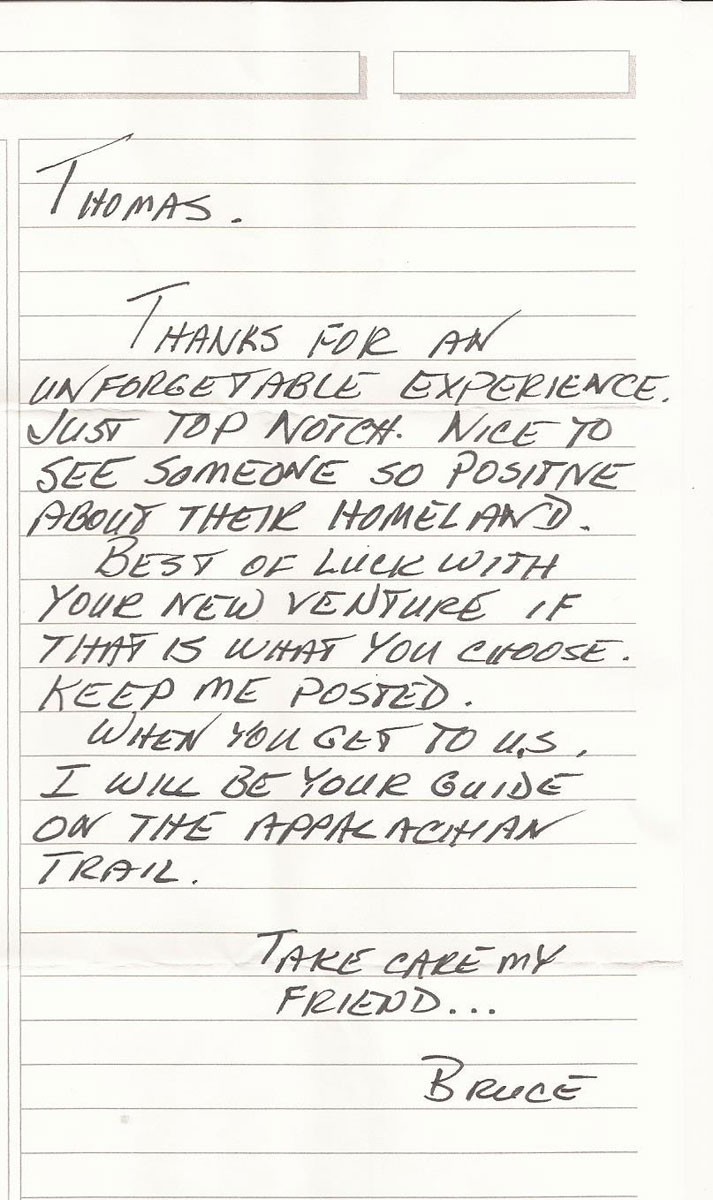 THOMAS.
THANKS FOR AN
UNFORGETTABLE EXPERIENCE.
JUST TOP NOTCH. NICE TO
SEE SOMEONE SO POSITIVE
ABOUT THEIR HOMELAND.
BEST OF LUCK WITH
YOUR NEW VENTURE IF
THAT IS WHAT YOU CHOOSE.
KEEP ME POSTED.
WHEN YOU GET TO U.S.,
I WILL BE YOUR GUIDE
ON THE APPALACIHAN
TRAIL.
TAKE CARE MY
FRIEND...
BRUCE